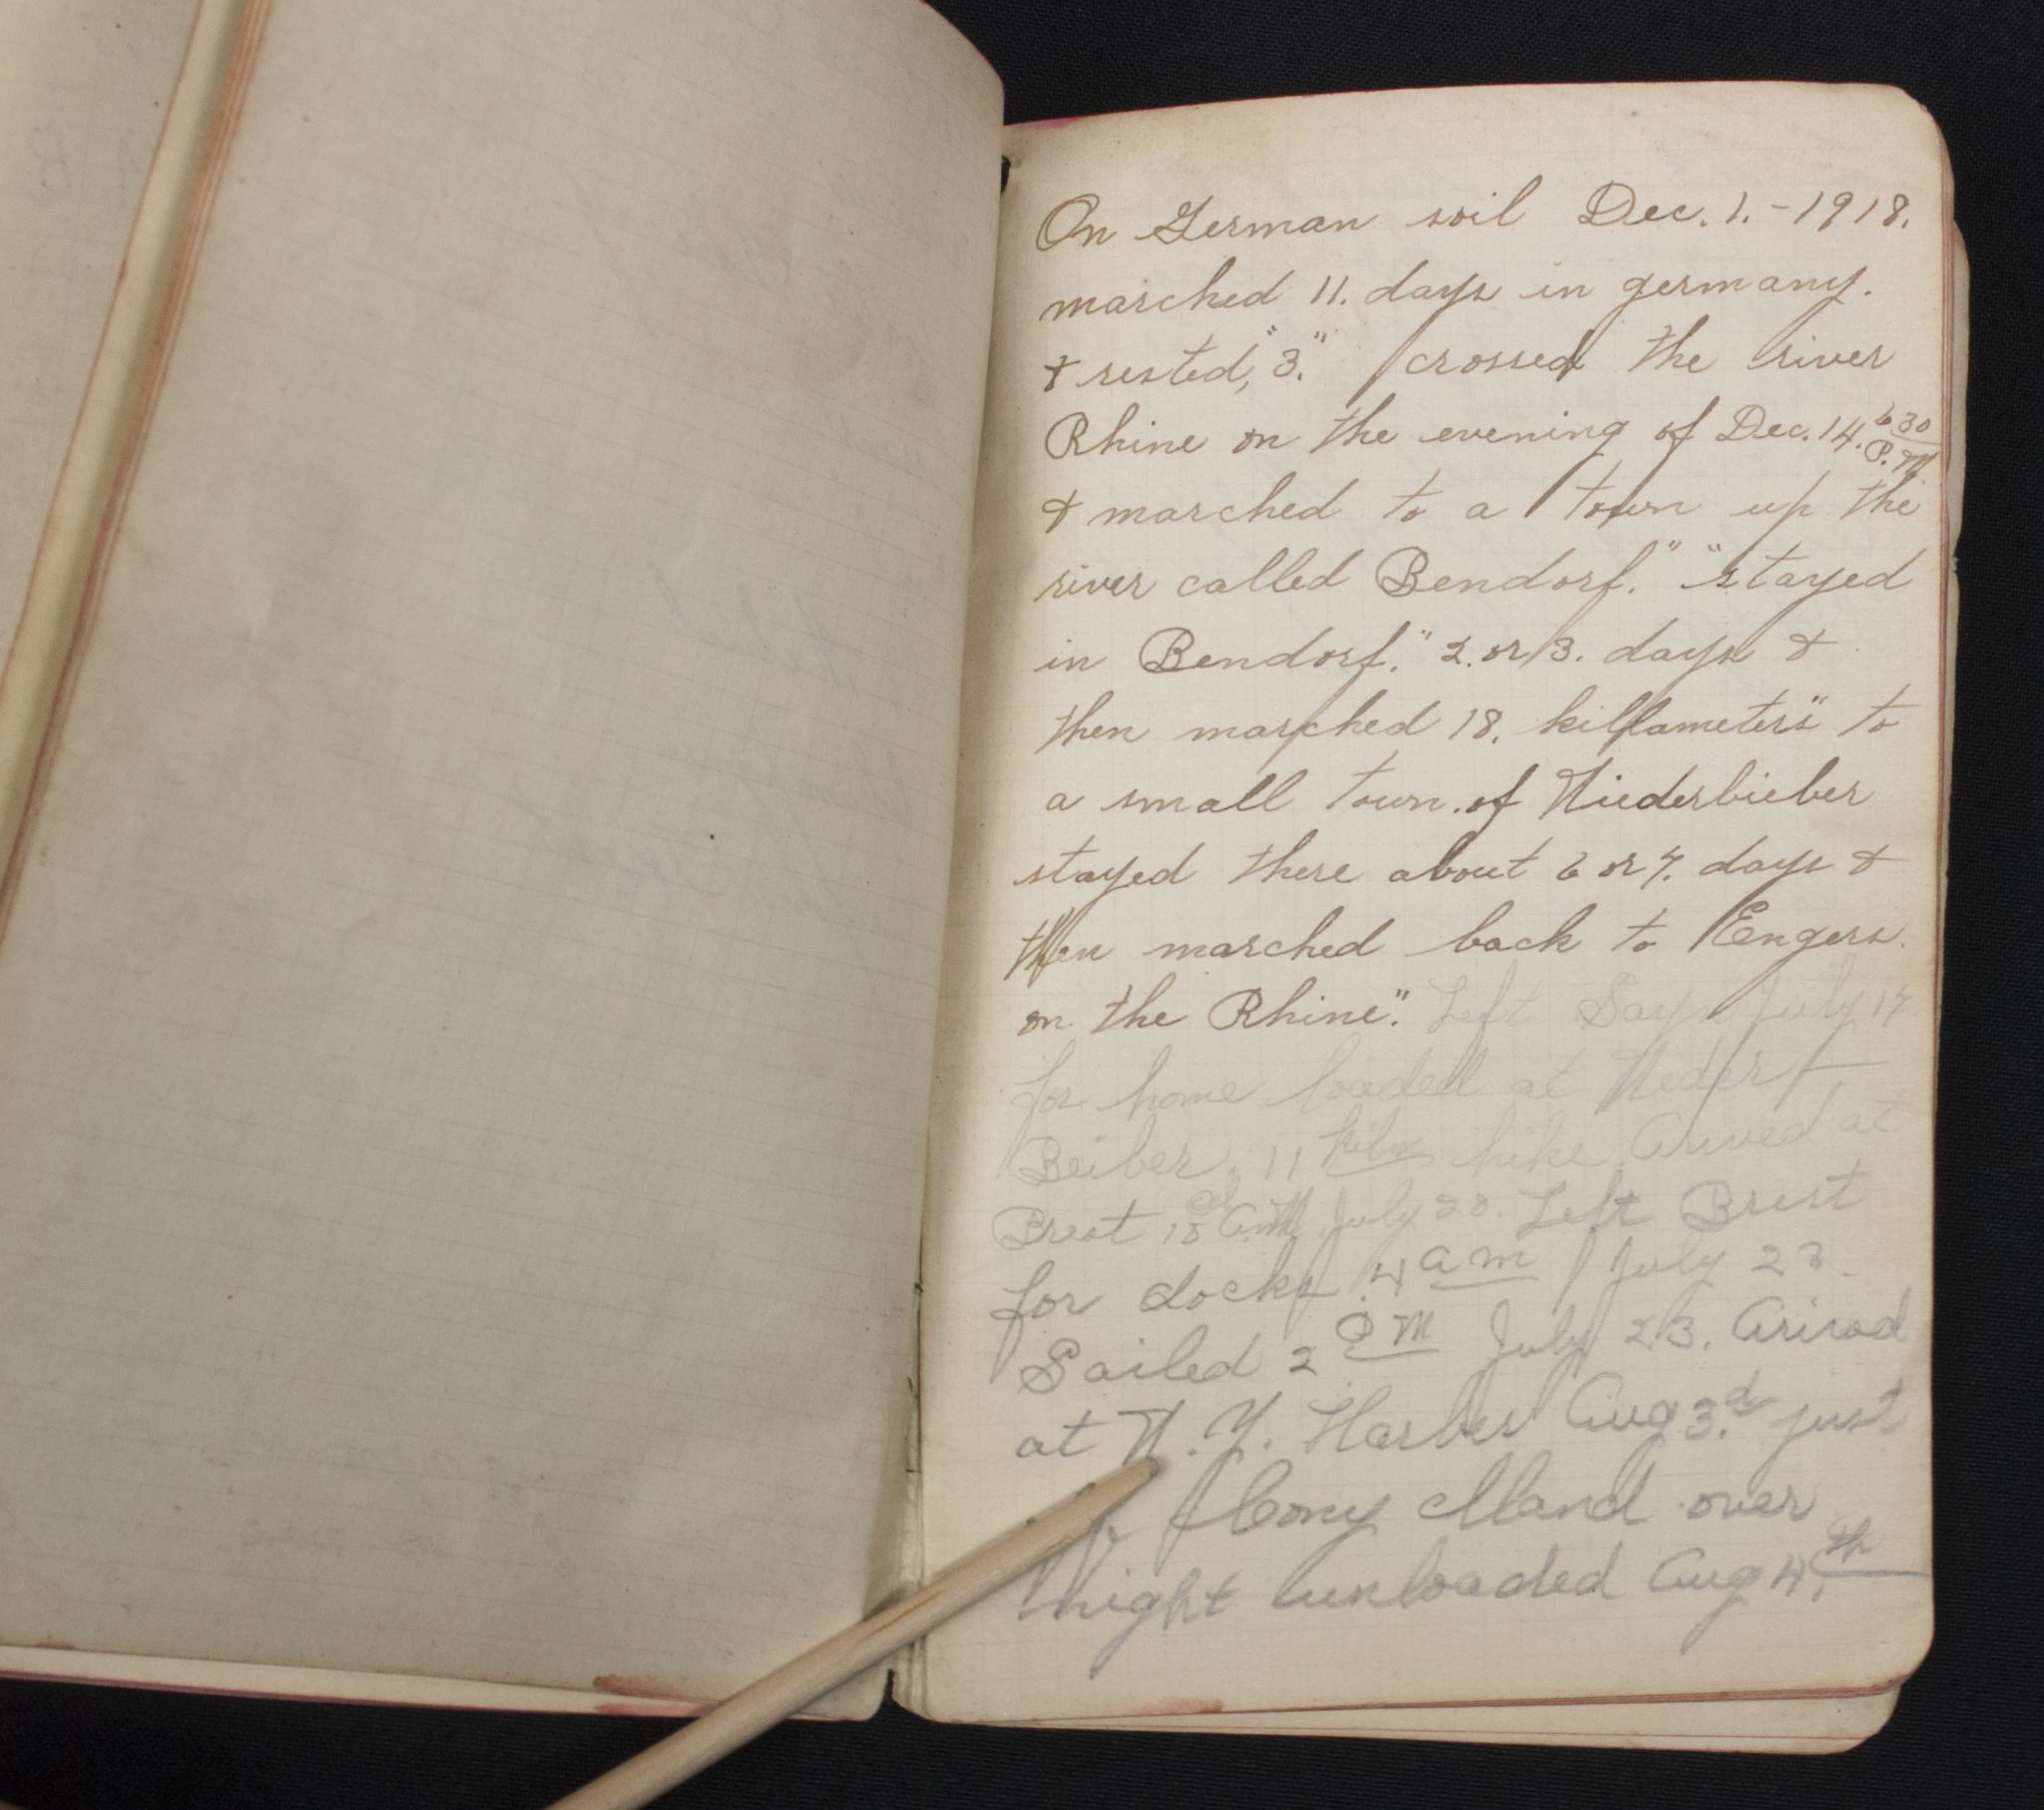 On German soil Dec. 1.-1918.
marched 11. days in germany.
& rested, "3." crossed the river
Rhine on the evening of Dec. 14. 6 30 P.M
& marched to a town up the
river called Bendorf." "stayed
in Bendorf." 2. or 3. days &
then marched 18. killameters" to
a small town. of Niederbieber
stayed there about 6 or 7. days &
then marched back to Engers.
on the Rhine". Left Sayn July 17
for home loaded at Neder
Beiber, 11 kilo hike Arived at
Brest July 20. Left Brest
for docks 4 am July 23.
Sailed 2 PM July 23. Arived
at N.Y. Harber Aug 3.d just
Cony Iland over
night unloaded Aug 4.th